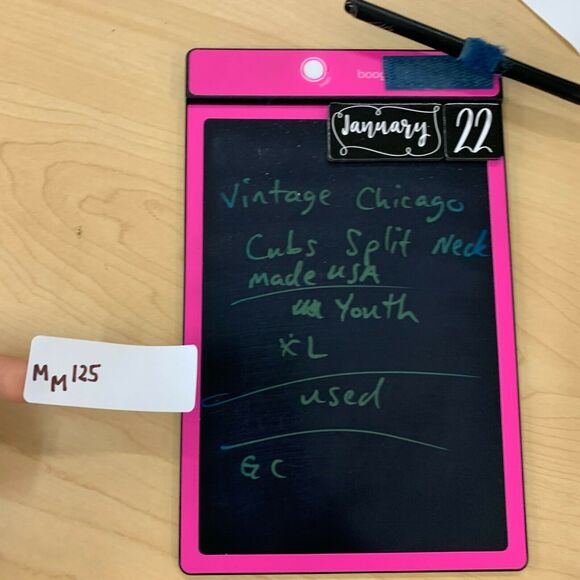 boog
January 22
Vintage Chicago
Cubs Split Neck
made USA
Youth
XL
used
GC
MM125